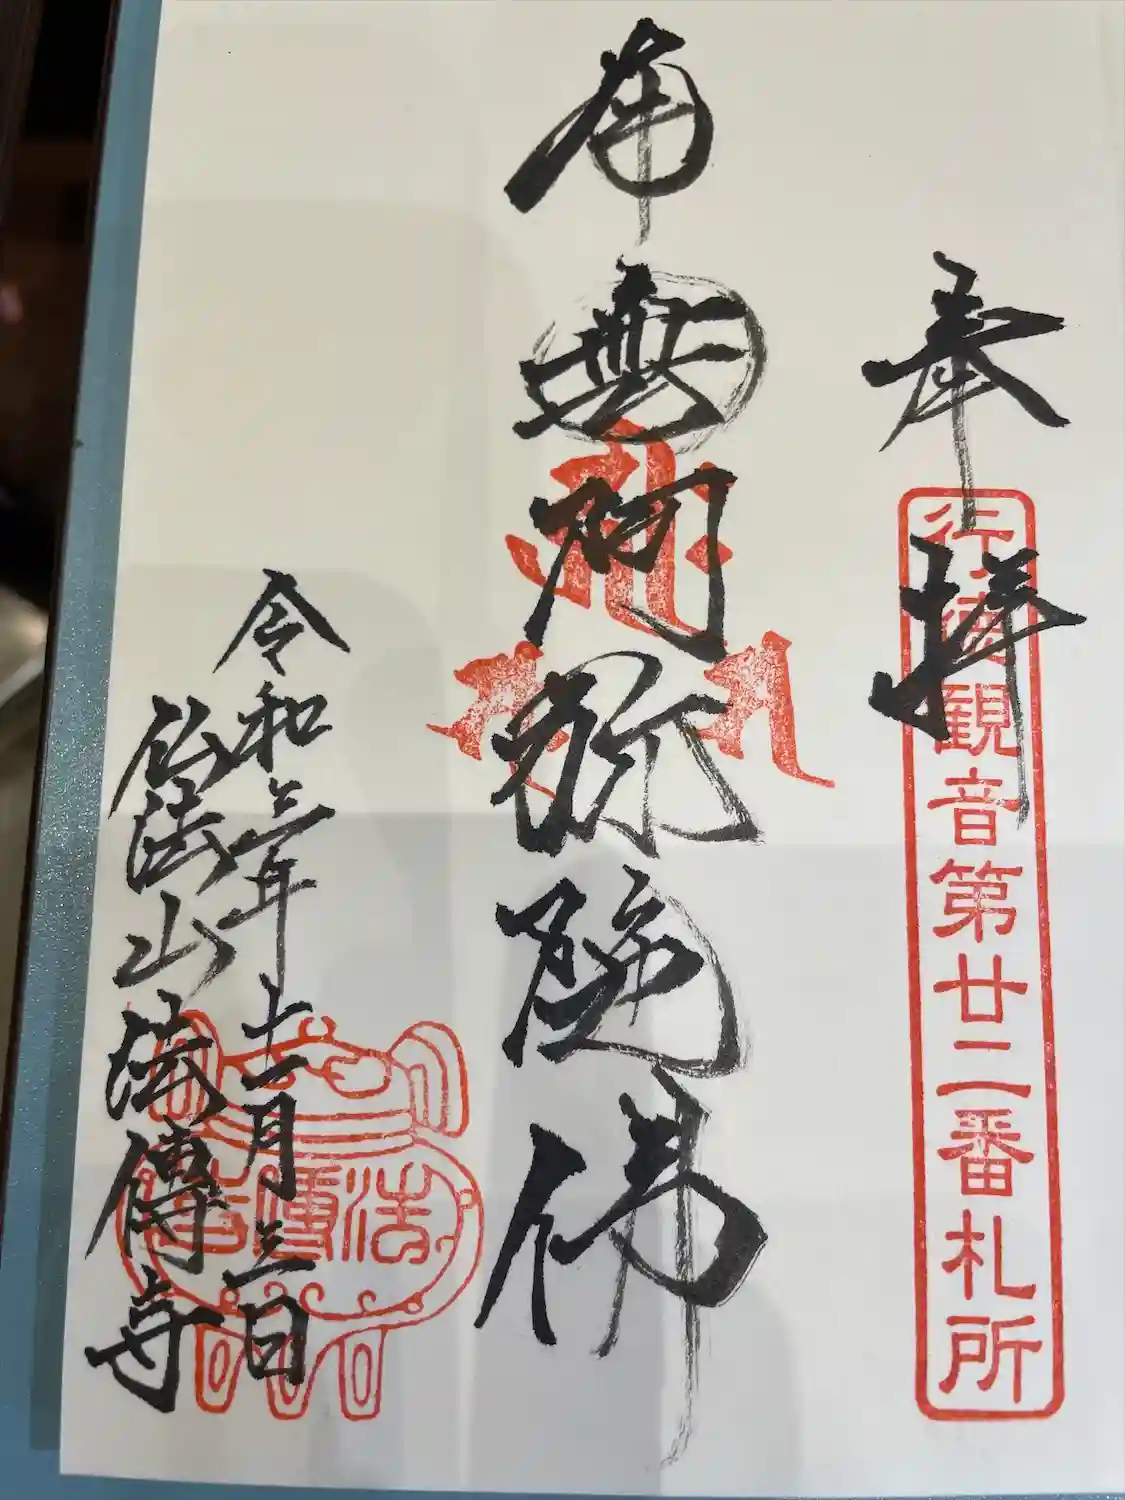 奉拝
行徳観音第廿二番札所
南無阿弥陀佛
令和三年十一月三日
仏法山法傳寺
法傳寺